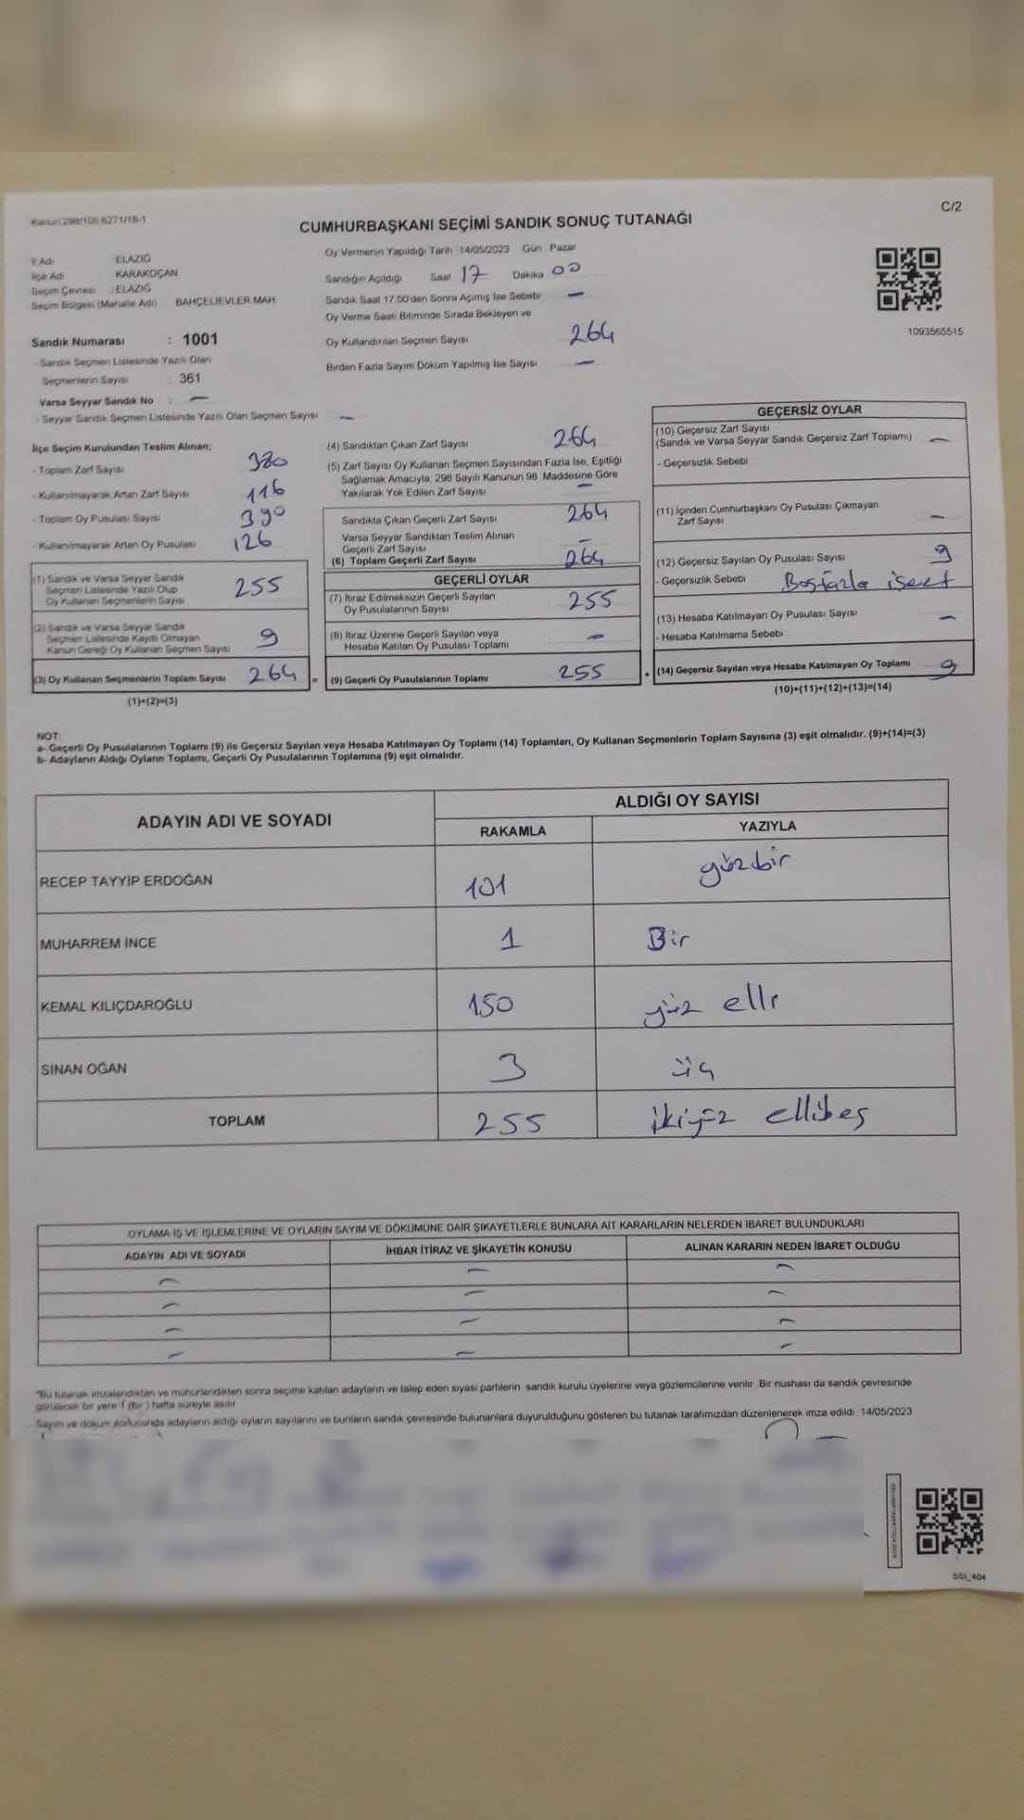 Kanun:298/105,6271/18-1
C/2
CUMHURBAŞKANI SEÇİMİ SANDIK SONUÇ TUTANAĞI
İl Adı : ELAZIĞ
İlçe Adı : KARAKOÇAN
Seçim Çevresi : ELAZIĞ
Seçim Bölgesi (Mahalle Adı) BAHÇELİEVLER MAH.
Oy Vermenin Yapıldığı Tarih 14/05/2023 Gün Pazar
Sandığın Açıldığı Saat 17 Dakika 00
Sandık Saat 17.00'den Sonra Açılmış İse Sebebi —
Oy Verme Saati Bitiminde Sırada Bekleyen ve
Oy Kullandırılan Seçmen Sayısı 264
Birden Fazla Sayım Döküm Yapılmış İse Sayısı —
1093565515
Sandık Numarası : 1001
- Sandık Seçmen Listesinde Yazılı Olan
Seçmenlerin Sayısı : 361
Varsa Seyyar Sandık No : —
- Seyyar Sandık Seçmen Listesinde Yazılı Olan Seçmen Sayısı —
İlçe Seçim Kurulundan Teslim Alınan;
- Toplam Zarf Sayısı 380
- Kullanılmayarak Artan Zarf Sayısı 116
- Toplam Oy Pusulası Sayısı 390
- Kullanılmayarak Artan Oy Pusulası 126
(1) Sandık ve Varsa Seyyar Sandık
Seçmen Listesinde Yazılı Olup
Oy Kullanan Seçmenlerin Sayısı 255
(2) Sandık ve Varsa Seyyar Sandık
Seçmen Listesinde Kayıtlı Olmayan
Kanun Gereği Oy Kullanan Seçmen Sayısı 9
(3) Oy Kullanan Seçmenlerin Toplam Sayısı 264
(1)+(2)=(3)
(4) Sandıktan Çıkan Zarf Sayısı 264
(5) Zarf Sayısı Oy Kullanan Seçmen Sayısından Fazla İse, Eşitliği
Sağlamak Amacıyla, 298 Sayılı Kanunun 98. Maddesine Göre
Yakılarak Yok Edilen Zarf Sayısı —
Sandıkta Çıkan Geçerli Zarf Sayısı 264
Varsa Seyyar Sandıktan Teslim Alınan
Geçerli Zarf Sayısı —
(6) Toplam Geçerli Zarf Sayısı 264
GEÇERLİ OYLAR
(7) İtiraz Edilmeksizin Geçerli Sayılan
Oy Pusulalarının Sayısı 255
(8) İtiraz Üzerine Geçerli Sayılan veya
Hesaba Katılan Oy Pusulası Toplamı —
= (9) Geçerli Oy Pusulalarının Toplamı 255
GEÇERSİZ OYLAR
(10) Geçersiz Zarf Sayısı
(Sandık ve Varsa Seyyar Sandık Geçersiz Zarf Toplamı) —
- Geçersizlik Sebebi
(11) İçinden Cumhurbaşkanı Oy Pusulası Çıkmayan
Zarf Sayısı —
(12) Geçersiz Sayılan Oy Pusulası Sayısı 9
- Geçersizlik Sebebi Boş fazla işaret
(13) Hesaba Katılmayan Oy Pusulası Sayısı —
- Hesaba Katılmama Sebebi :
+ (14) Geçersiz Sayılan veya Hesaba Katılmayan Oy Toplamı 9
(10)+(11)+(12)+(13)=(14)
NOT:
a- Geçerli Oy Pusulalarının Toplamı (9) ile Geçersiz Sayılan veya Hesaba Katılmayan Oy Toplamı (14) Toplamları, Oy Kullanan Seçmenlerin Toplam Sayısına (3) eşit olmalıdır. (9)+(14)=(3)
b- Adayların Aldığı Oyların Toplamı, Geçerli Oy Pusulalarının Toplamına (9) eşit olmalıdır.
ADAYIN ADI VE SOYADI
ALDIĞI OY SAYISI
RAKAMLA YAZIYLA
RECEP TAYYİP ERDOĞAN 101 yüzbir
MUHARREM İNCE 1 Bir
KEMAL KILIÇDAROĞLU 150 yüz elli
SİNAN OĞAN 3 üç
TOPLAM 255 ikiyüz ellibeş
OYLAMA İŞ VE İŞLEMLERİNE VE OYLARIN SAYIM VE DÖKÜMÜNE DAİR ŞİKAYETLERLE BUNLARA AİT KARARLARIN NELERDEN İBARET BULUNDUKLARI
ADAYIN ADI VE SOYADI İHBAR İTİRAZ VE ŞİKAYETİN KONUSU ALINAN KARARIN NEDEN İBARET OLDUĞU
— — —
— — —
— — —
— — —
*Bu tutanak imzalandıktan ve mühürlendikten sonra seçime katılan adayların ve talep eden siyasi partilerin sandık kurulu üyelerine veya gözlemcilerine verilir. Bir nüshası da sandık çevresinde
görülecek bir yere 1 (bir) hafta süreyle asılır.
Sayım ve döküm sonucunda adayların aldığı oyların sayılarını ve bunların sandık çevresinde bulunanlara duyurulduğunu gösteren bu tutanak tarafımızdan düzenlenerek imza edildi. 14/05/2023
SSİ_404